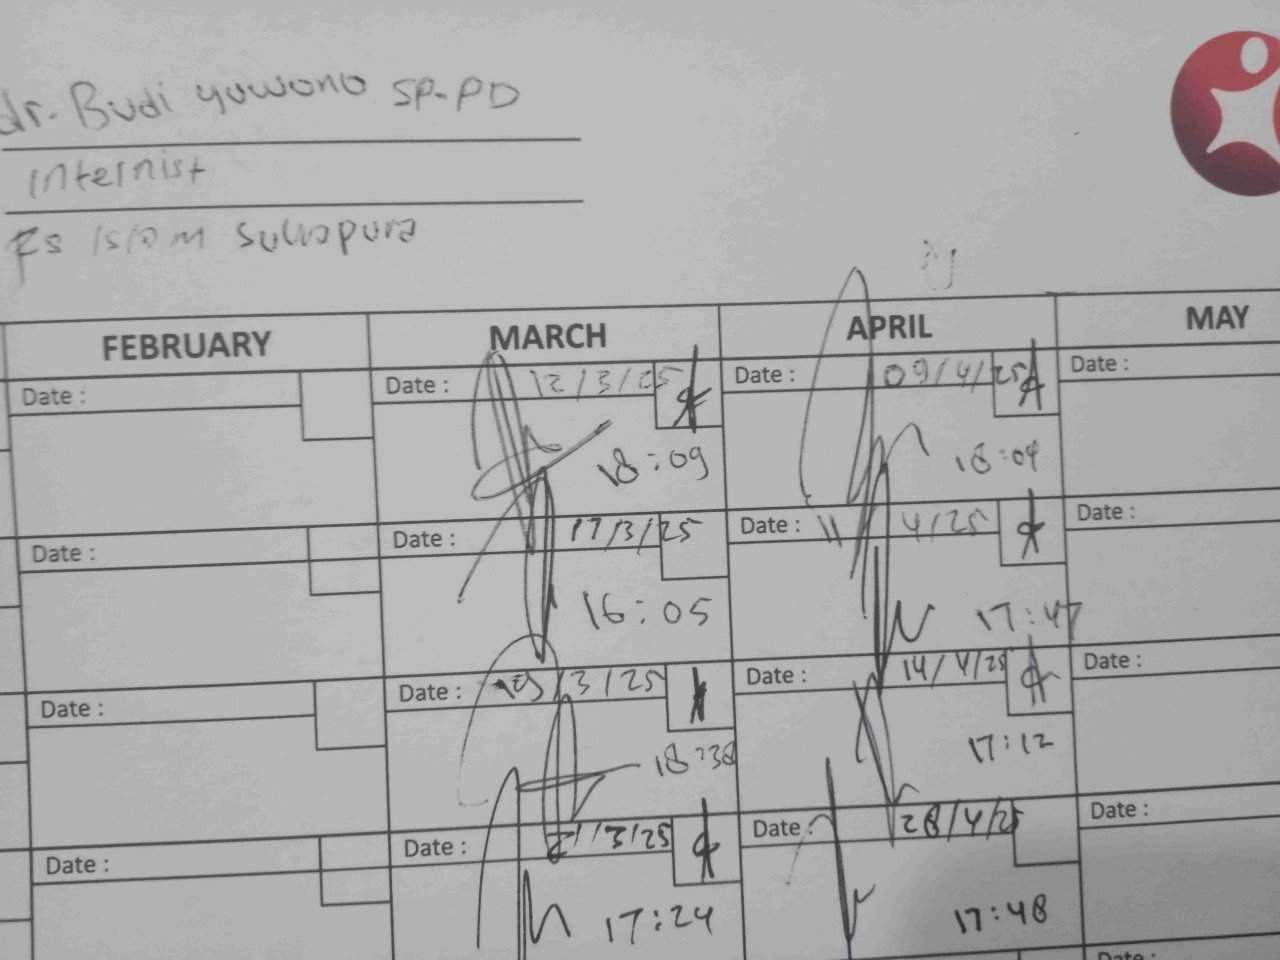 dr. Budi yuwono SP-PD
Internist
Rs Islam Sukapura
FEBRUARY MARCH APRIL MAY
Date : Date : 12/3/25 Date : 09/4/25 Date :
18:09 18:04
Date : Date : 17/3/25 Date : 11 4/25 Date :
16:05 17:47
Date : Date : /3/25 Date : 14/4/25 Date :
18:38 17:12
Date : Date : 21/3/25 Date : 28/4/25 Date :
17:24 17:48
Date :